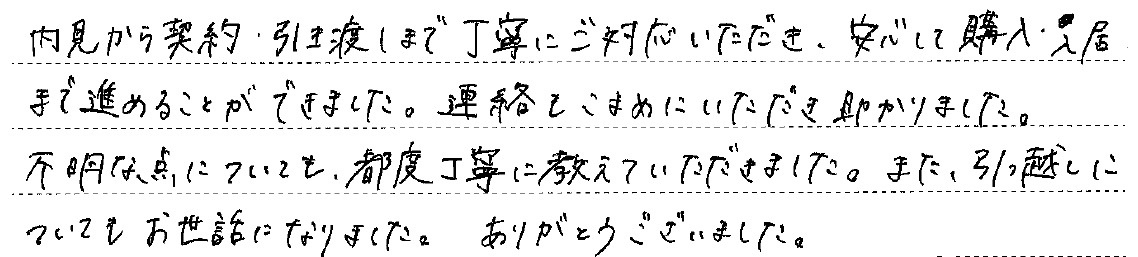 内見から契約・引き渡しまで丁寧にご対応いただき、安心して購入・入居
まで進めることができました。連絡もこまめにいただき助かりました。
不明な点についても、都度丁寧に教えていただきました。また、引っ越しに
ついてもお世話になりました。 ありがとうございました。